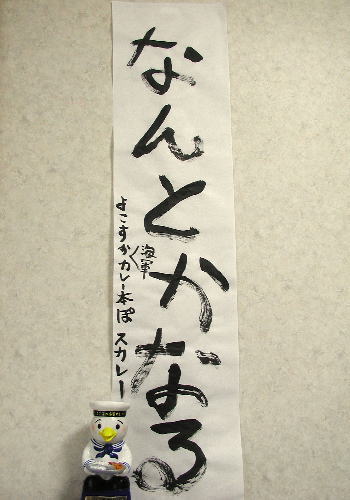 なんとかなる
よこすか海軍カレー本ぽ スカレー